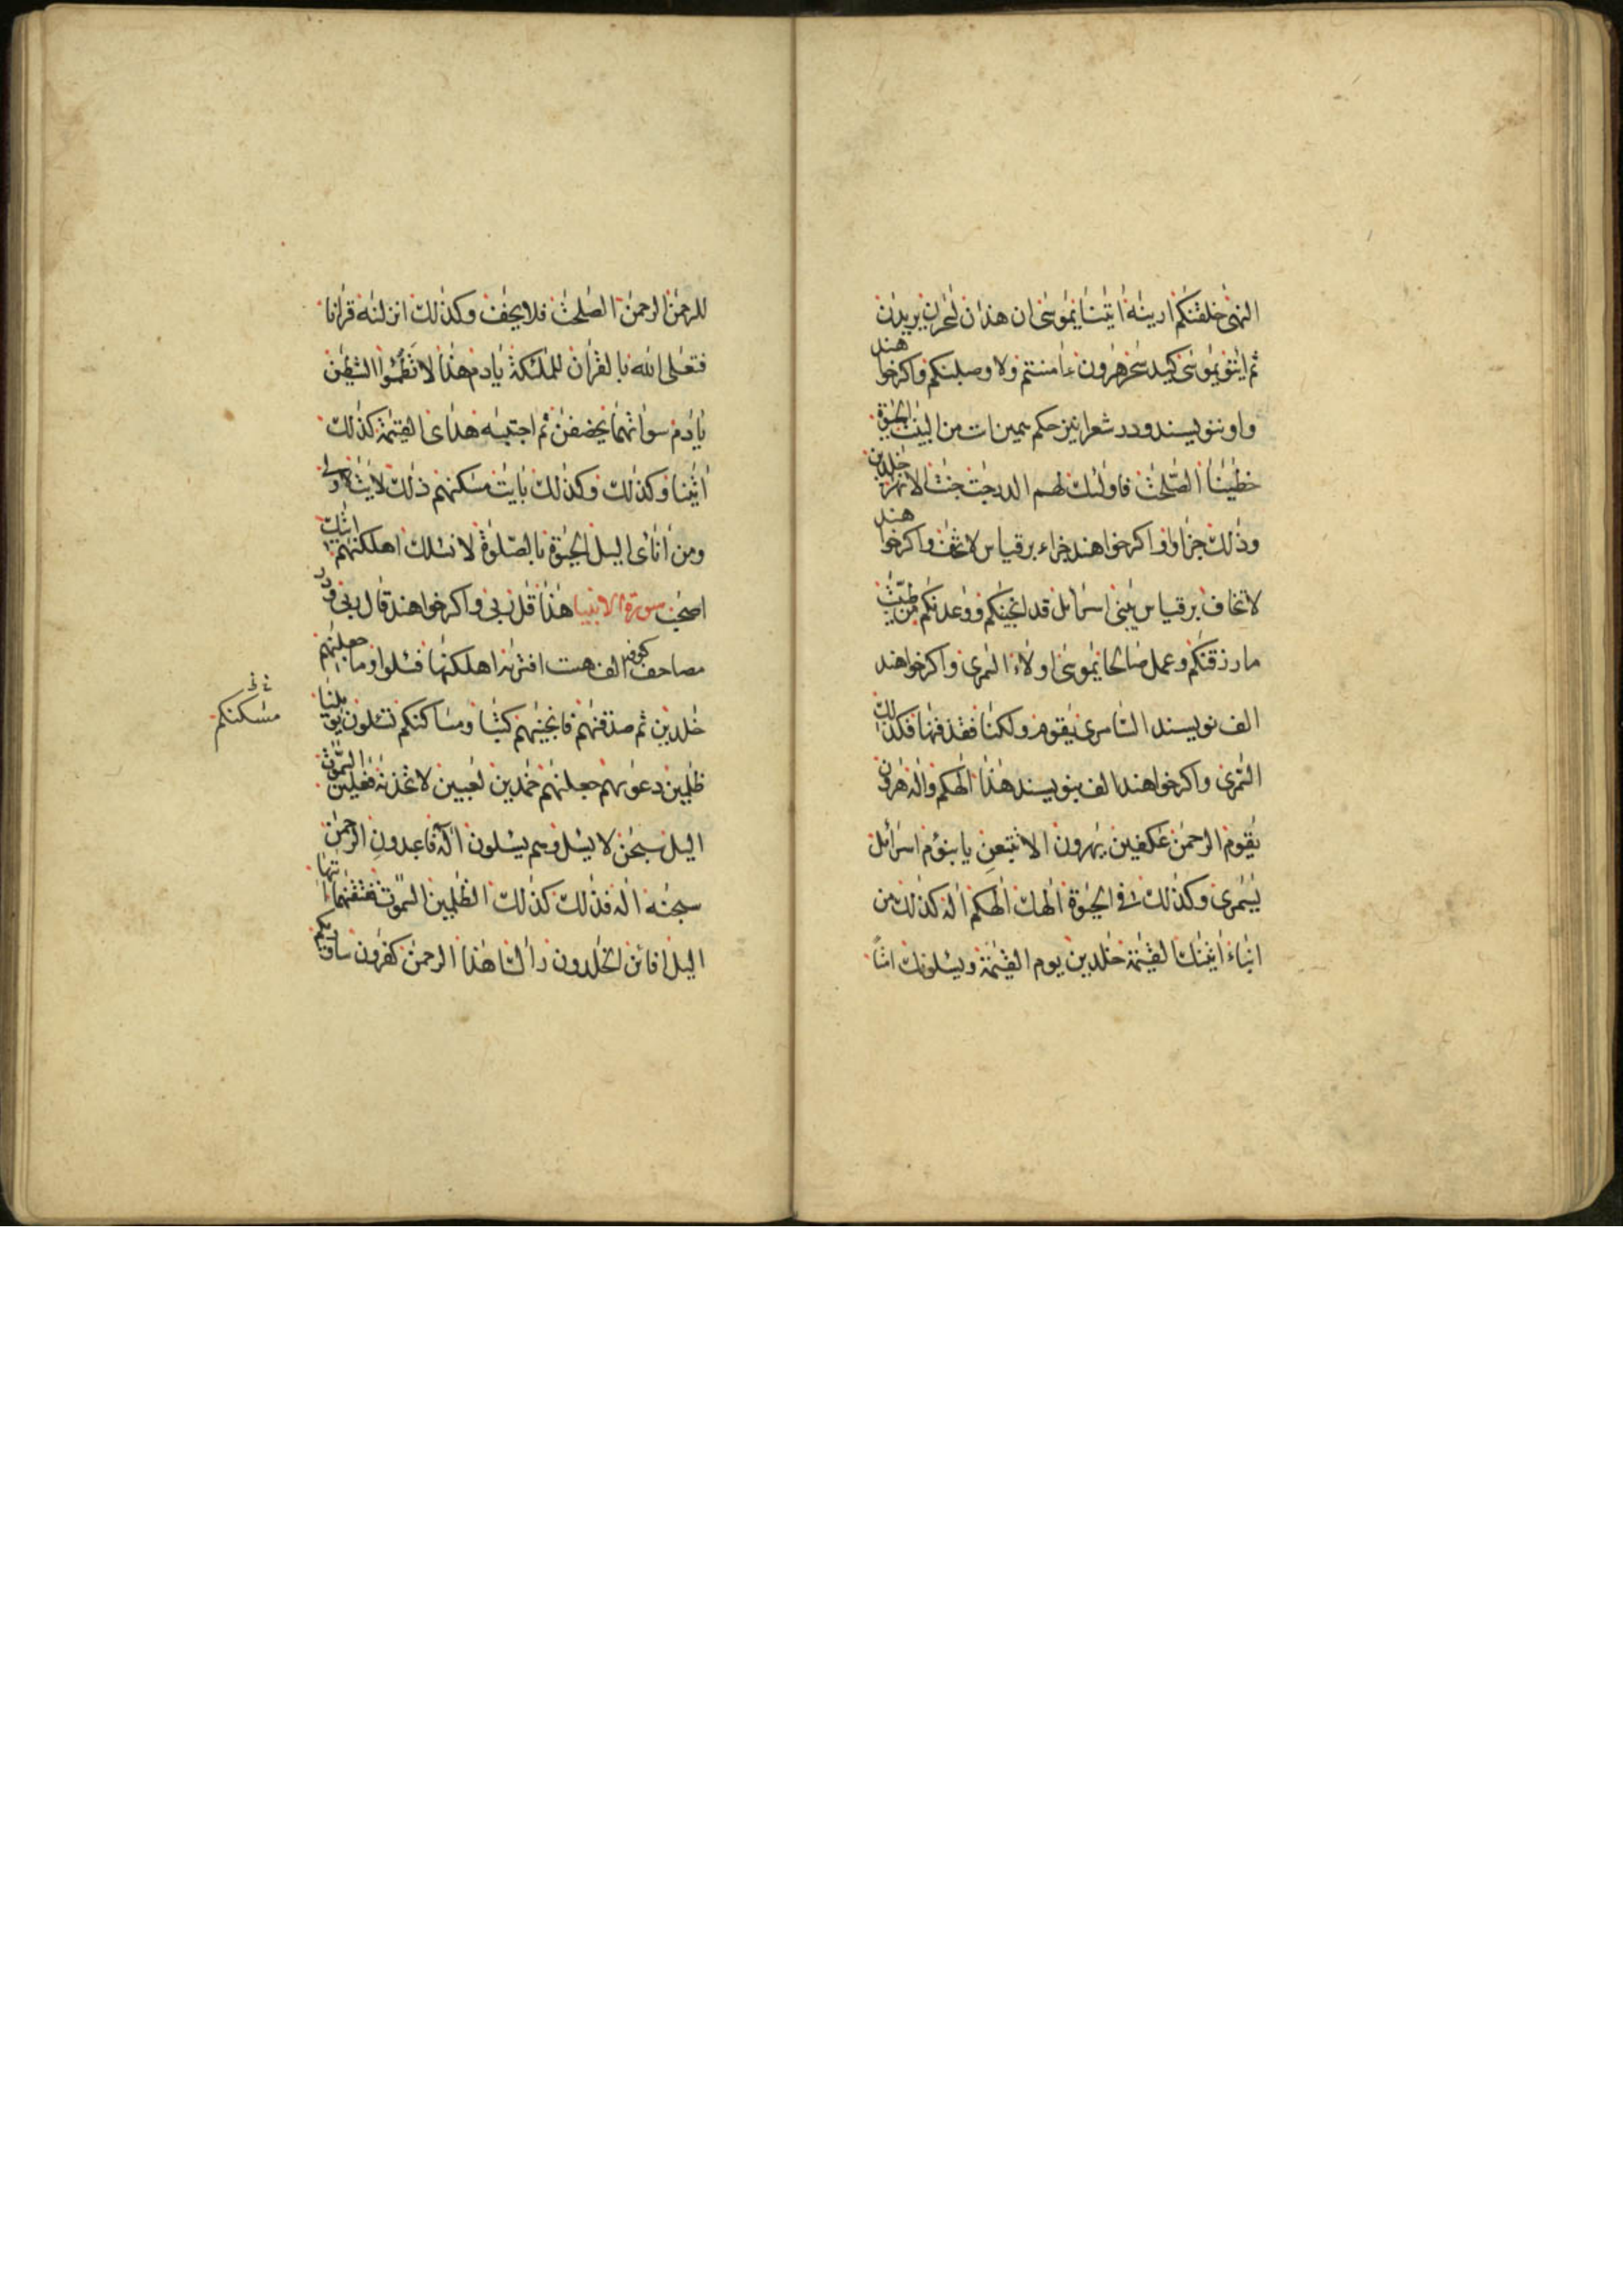 النهى خلقنكم ارينه أيتنا يموسى ان هذن لسحرن يريدن
ثم ايتو يموسى كيد سحر هرون ءامنتم ولاوصلبنكم واكر خوا هند
واو ننويسند ودر شعرا نيز حكم همين است من البينت الحيوة
خطينا الصلحت فاولئك لهم الدرجت جنت الانهر خلدين
وذلك جزاؤا واكر خواهند جزاء برقياس لاتخف واكر خوا هند
لاتخاف برقياس يبنى اسرائل قد انجينكم ووعدنكم من طيبت
ما رزقنكم وعمل صالحا يموسى اولاء السمرى واكر خواهند
الف نويسند السامرى يقوم ولكنا فقذفنها فكذلك
السمرى واكر خواهند الف بنويسند هذا الهكم واله هرون
يقوم الرحمن عكفين يهرون الا تتبعن يابنؤم اسرائل
يسمرى وكذلك فى الحيوة الهك الهكم اله كذلك من
انباء أتينك القيمة خلدين يوم القيمة ويسئلونك امتا
للرحمن الرحمن الصلحت فلا يخف وكذلك انزلنه قرانا
فتعلى الله بالقران للملئكة يادم هذا لا تظمؤا الشيطن
يادم سواتهما يخصفن ثم اجتبيه هداى القيمة كذلك
أيتنا وكذلك وكذلك بايت مسكنهم ذلك لايت لاولى
ومن أنائ اليل الحيوة بالصلوة لا نسئلك اهلكنهم ايتك
اصحب سورة الانبيا هذا قل ربى واكر خواهند قال ربى ودر
مصاحف كوفه الف هست افتريه اهلكنها فسئلوا وما جعلنهم
خلدين ثم صدقنهم فانجينهم كتبا ومساكنكم تسئلون يويلنا
مسكنكم
ظلمين دعويهم جعلنهم خمدين لعبين لاتخذنه فعلين السموت
اليل سبحن لا يسئل وهم يسئلون الهة فاعبدون الرحمن
سبحنه اله فذلك كذلك الظلمين السموت ففتقنهما ايتها
اليل افائن الخلدون راك هذا الرحمن كفرون ساوريكم